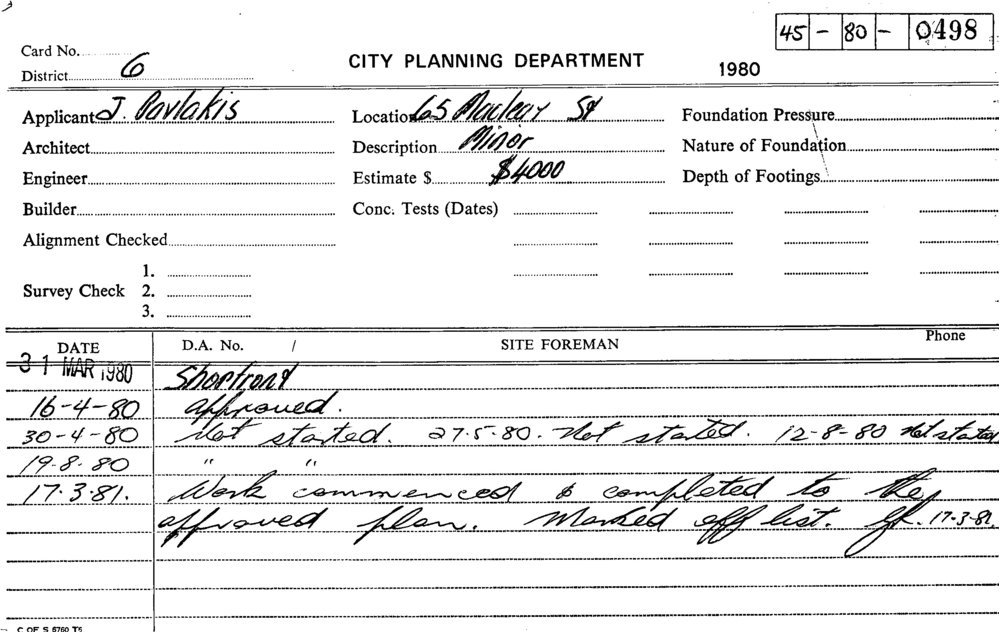 45 - 80 - 0498
Card No.
CITY PLANNING DEPARTMENT
1980
District 6
Applicant J. Pavlakis
Location 65 Macleay St
Foundation Pressure
Architect
Description Minor
Nature of Foundation
Engineer
Estimate $ $4000
Depth of Footings
Builder
Conc. Tests (Dates)
Alignment Checked
Survey Check
1.
2.
3.
DATE
D.A. No. /
SITE FOREMAN
Phone
31 MAR 1980 Shopfront
16-4-80 approved.
30-4-80 Not started. 27.5.80. Not started. 12-8-80 Not started
19.8.80 " "
17.3.81. Work commenced & completed to the
approved plan. Marked off list. 17-3-81
C OF S 6760 T5